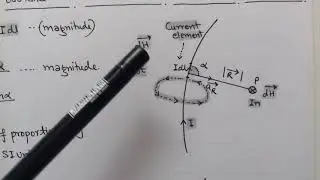 Idl ..... (magnitude)
R ..... magnitude.
of proportion
SI un
dH
Current
element
Idl
α
|R|
P
aR
In
dH
I